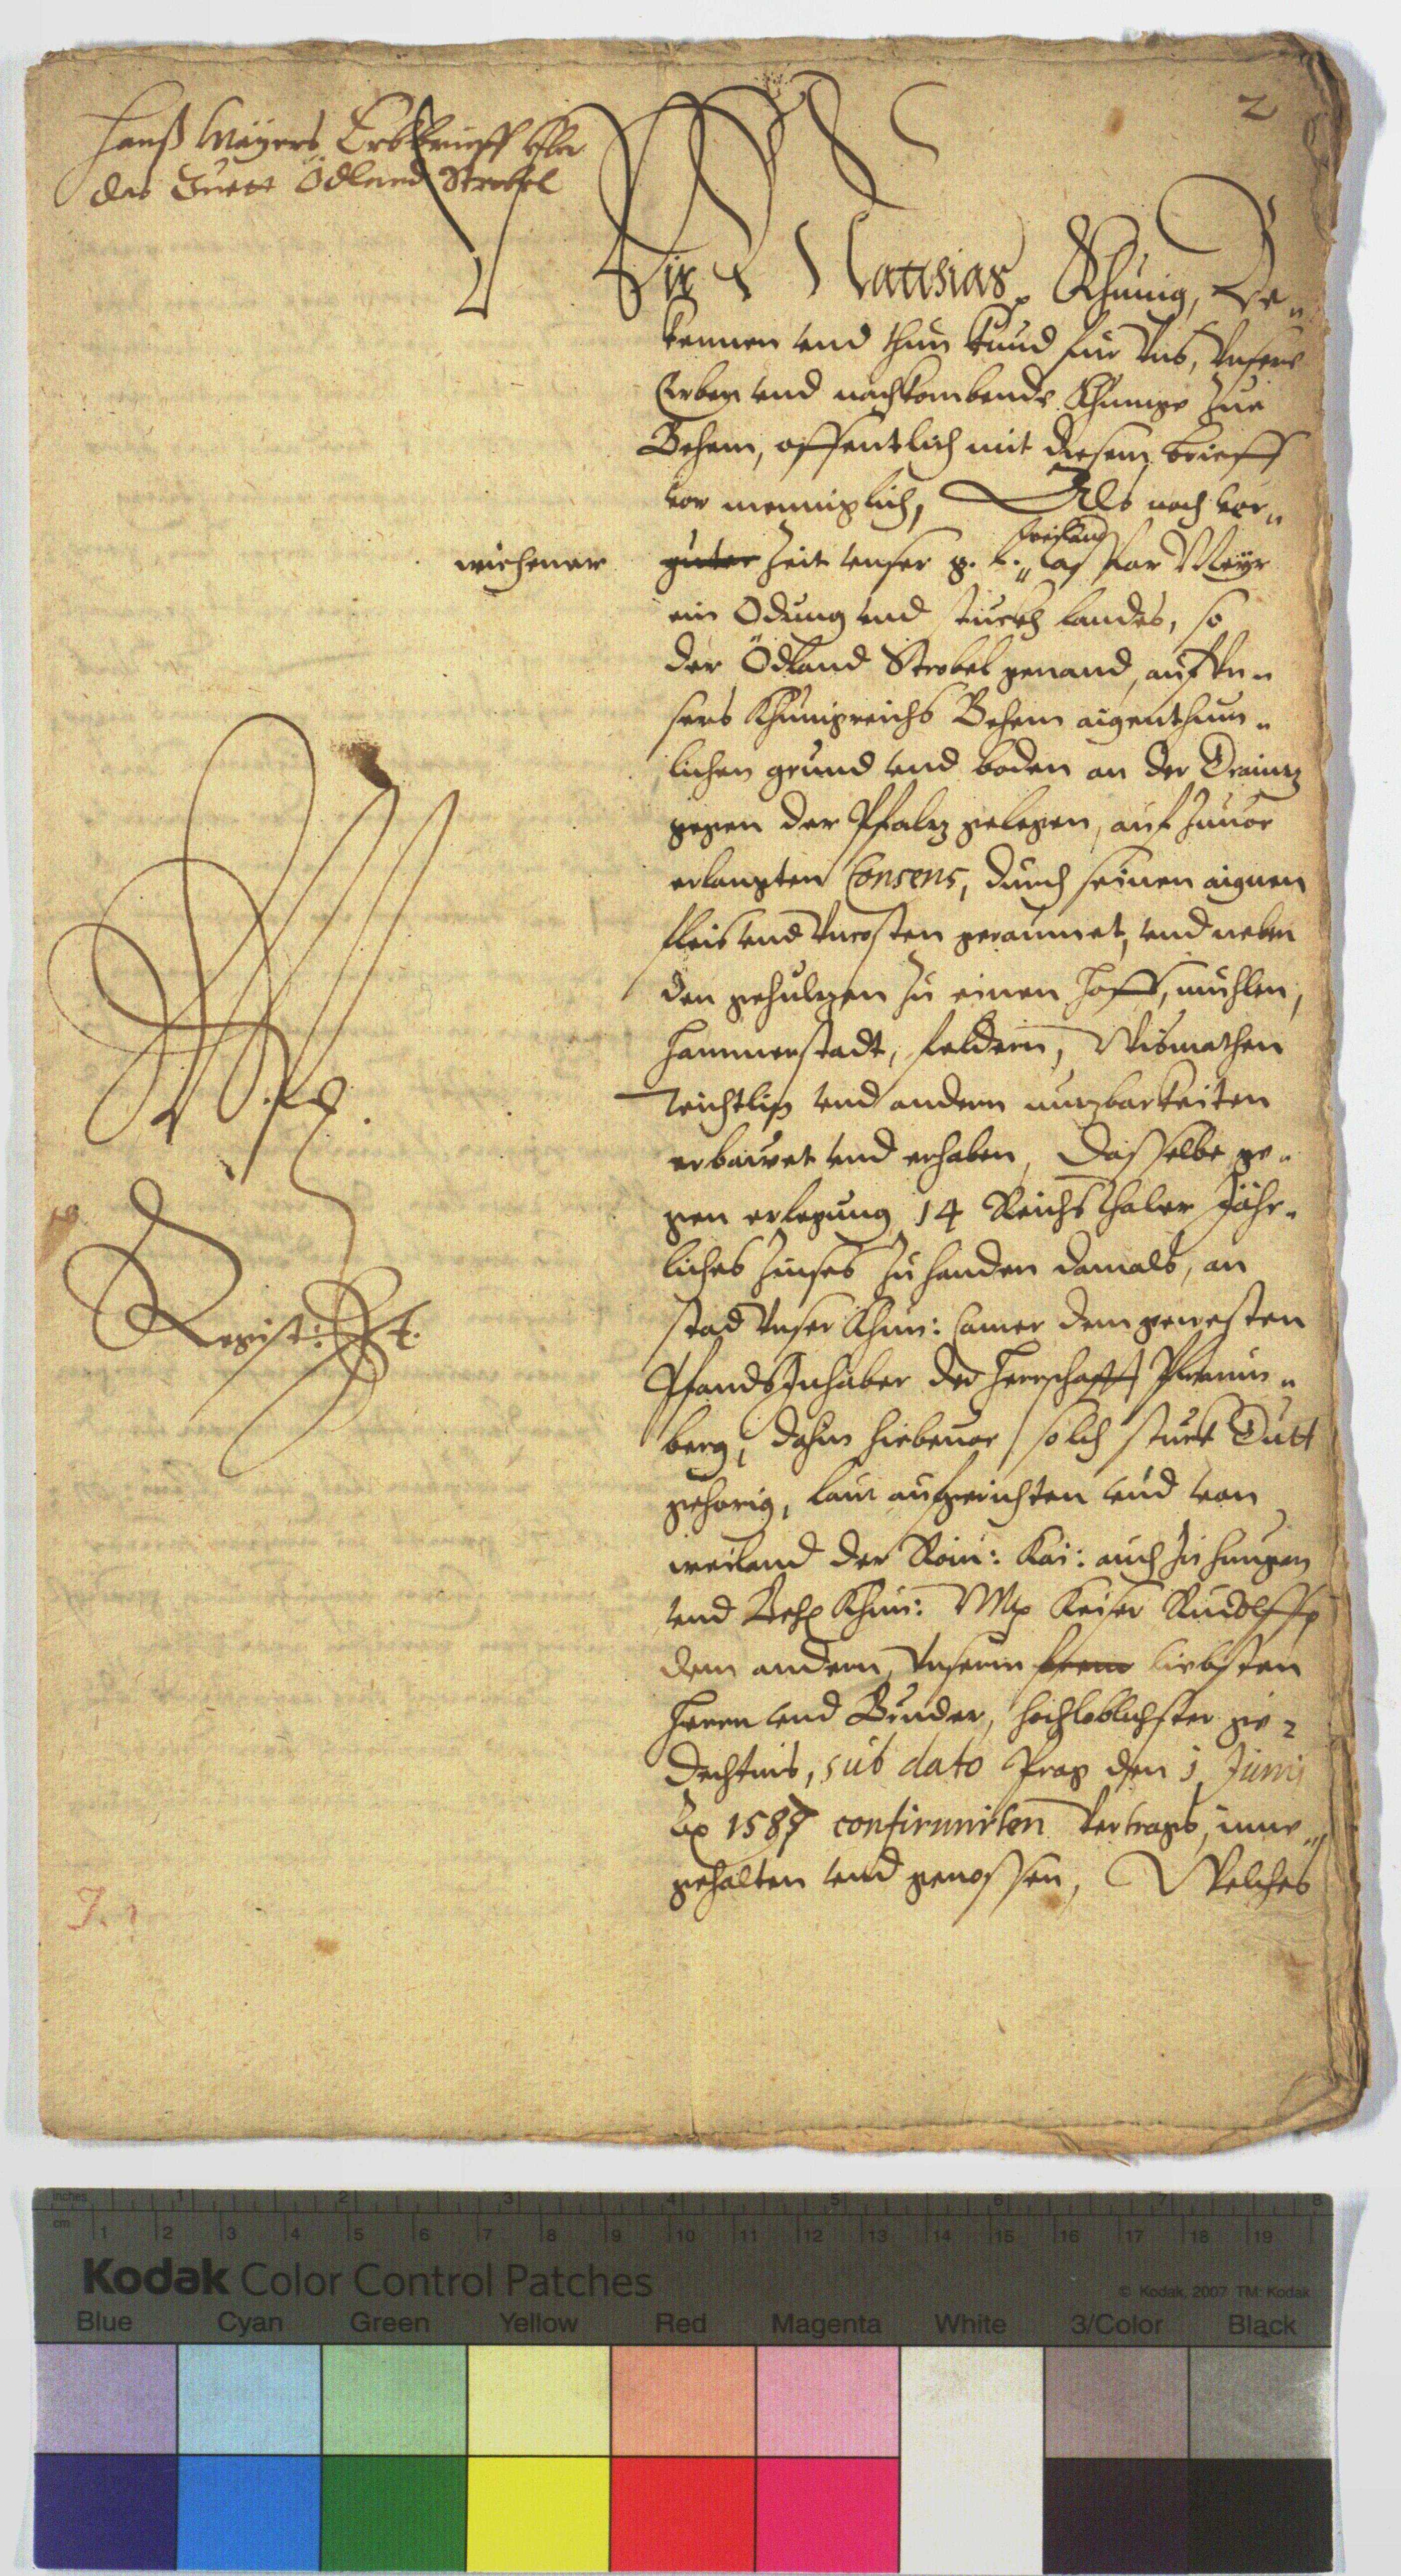 2
Hanß Mayers Erbbrieff vber
das Guett Ödland Strobel
Wir Matthias Khunig, Be-
kennen vnd thun kund fur Vns, Vnsere
Erben vnd nachkombende Khunige Zue
Behem, offentlich mit diesem brieff
vor menniglich, Als nach ver-
wichener
guter Zeit vnser g. L. Casspar Meyr
ein Odung vnd stuckh landes, so
der Ödland Strobel genand, auf vn-
sers Khunigreichs Behem aigenthum-
lichen grund vnd boden an der Grainz
gegen der Pfalz gelegen, auf Zuuor
erlangten Consens, durch seinen aignen
fleis vnd Vncosten geraumet, vnd neben
den gehulzen zu einen Hoff, muhlen,
Hammerstadt, feldern, Wismathen
Teichtlig vnd andern nuzbarkeiten
erbawet vnd erhaben, Dasselbe ge-
gen erlegung 14 Reichsthaler Jähr-
liches Zinses zuhanden damals, an
stad Vnser Khun: Camer dem gewesten
Pfandsinhaber der Herrschafft Pfraum-
berg, dahin hiebeuor solch stuck Gutt
gehorig, laut aufgerichten vnd von
weiland der Röm: Kai: auch zu hungern
vnd Beh Khun: Mt Keiser Rudolff
dem andern, Vnserm liebsten
Herrn vnd Bruder, hochloblichster ge-
dechtnis, sub dato Prag den 1 Junij
Ao 1587 confirmirten Vertrags, inne-
gehalten vnd genossen, Welches
Regist:
J.
inches
1 2 3 4 5 6 7 8
cm
1 2 3 4 5 6 7 8 9 10 11 12 13 14 15 16 17 18 19
Kodak Color Control Patches
© Kodak, 2007 TM: Kodak
Blue Cyan Green Yellow Red Magenta White 3/Color Black